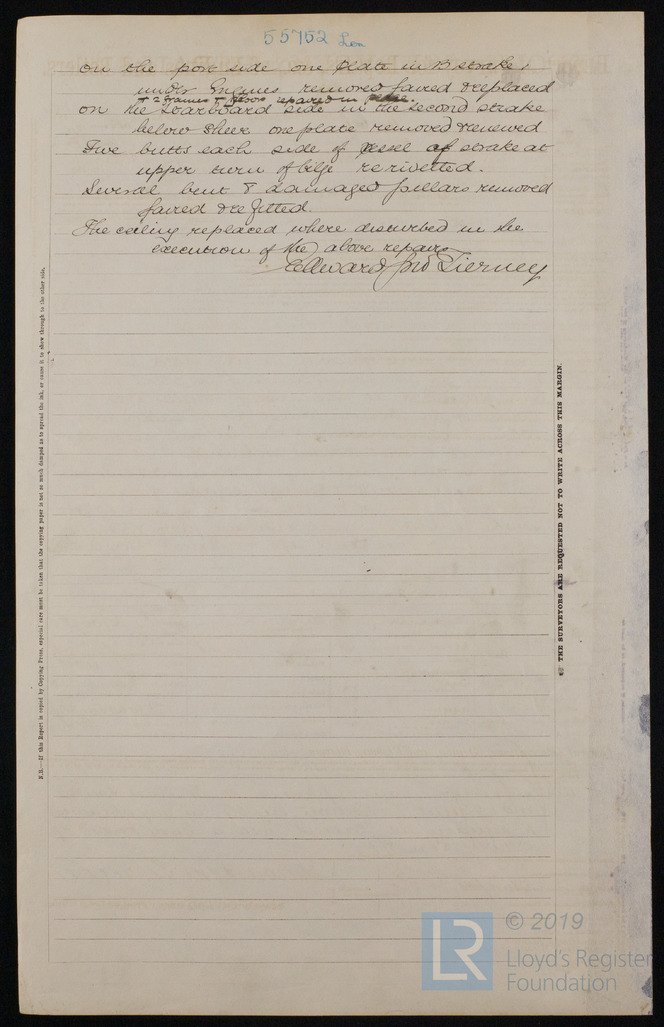 55752 Lon
On the port side one plate in B strake,
under Engines removed faired & replaced
+ 2 frames + floors repaired in place.
on the Starboard side in the second strake
below Sheer one plate removed & renewed
Five butts each side of vessel of strake at
upper turn of bilge rerivetted.
Several bent & damaged pillars removed
faired & refitted.
The ceiling replaced where disturbed in the
execution of the above repairs
Edward Jno Tierney
N.B.—If this Report is copied by Copying Press, especial care must be taken that the copying paper is not so much damped as to spread the ink, or cause it to show through to the other side.
THE SURVEYORS ARE REQUESTED NOT TO WRITE ACROSS THIS MARGIN.
LR
© 2019
Lloyd's Register
Foundation